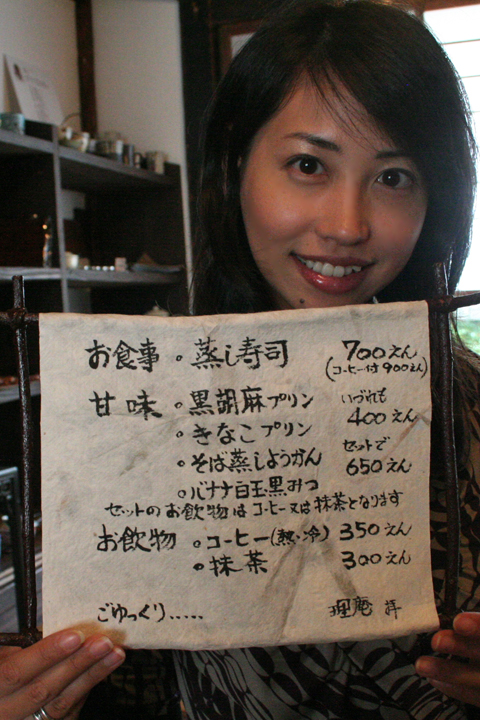 お食事 。蒸し寿司 700えん
(コーヒー付900えん)
甘味 。黒胡麻プリン いづれも
。きなこプリン 400えん
。そば蒸しようかん セットで 650えん
。バナナ白玉黒みつ
セットのお飲物はコーヒー又は抹茶となります
お飲物 。コーヒー(熱・冷) 350えん
。抹茶 300えん
ごゆっくり.....